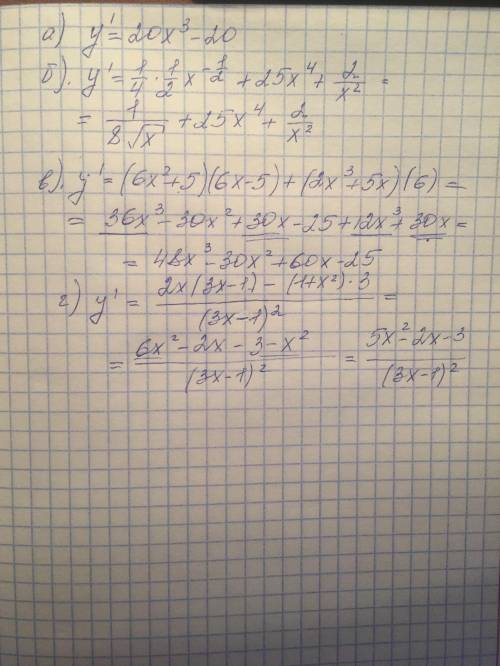 а) y' = 20x³ - 20
б). y' = 1/4 · 1/2 x^(-1/2) + 25x⁴ + 2/x² =
= 1/(8√x) + 25x⁴ + 2/x²
в). y' = (6x²+5)(6x-5) + (2x³+5x)(6) =
= 36x³ - 30x² + 30x - 25 + 12x³ + 30x =
= 48x³ - 30x² + 60x - 25
г) y' = (2x(3x-1) - (1+x²)·3)/(3x-1)² =
= (6x² - 2x - 3 - x²)/(3x-1)² = (5x² - 2x - 3)/(3x-1)²